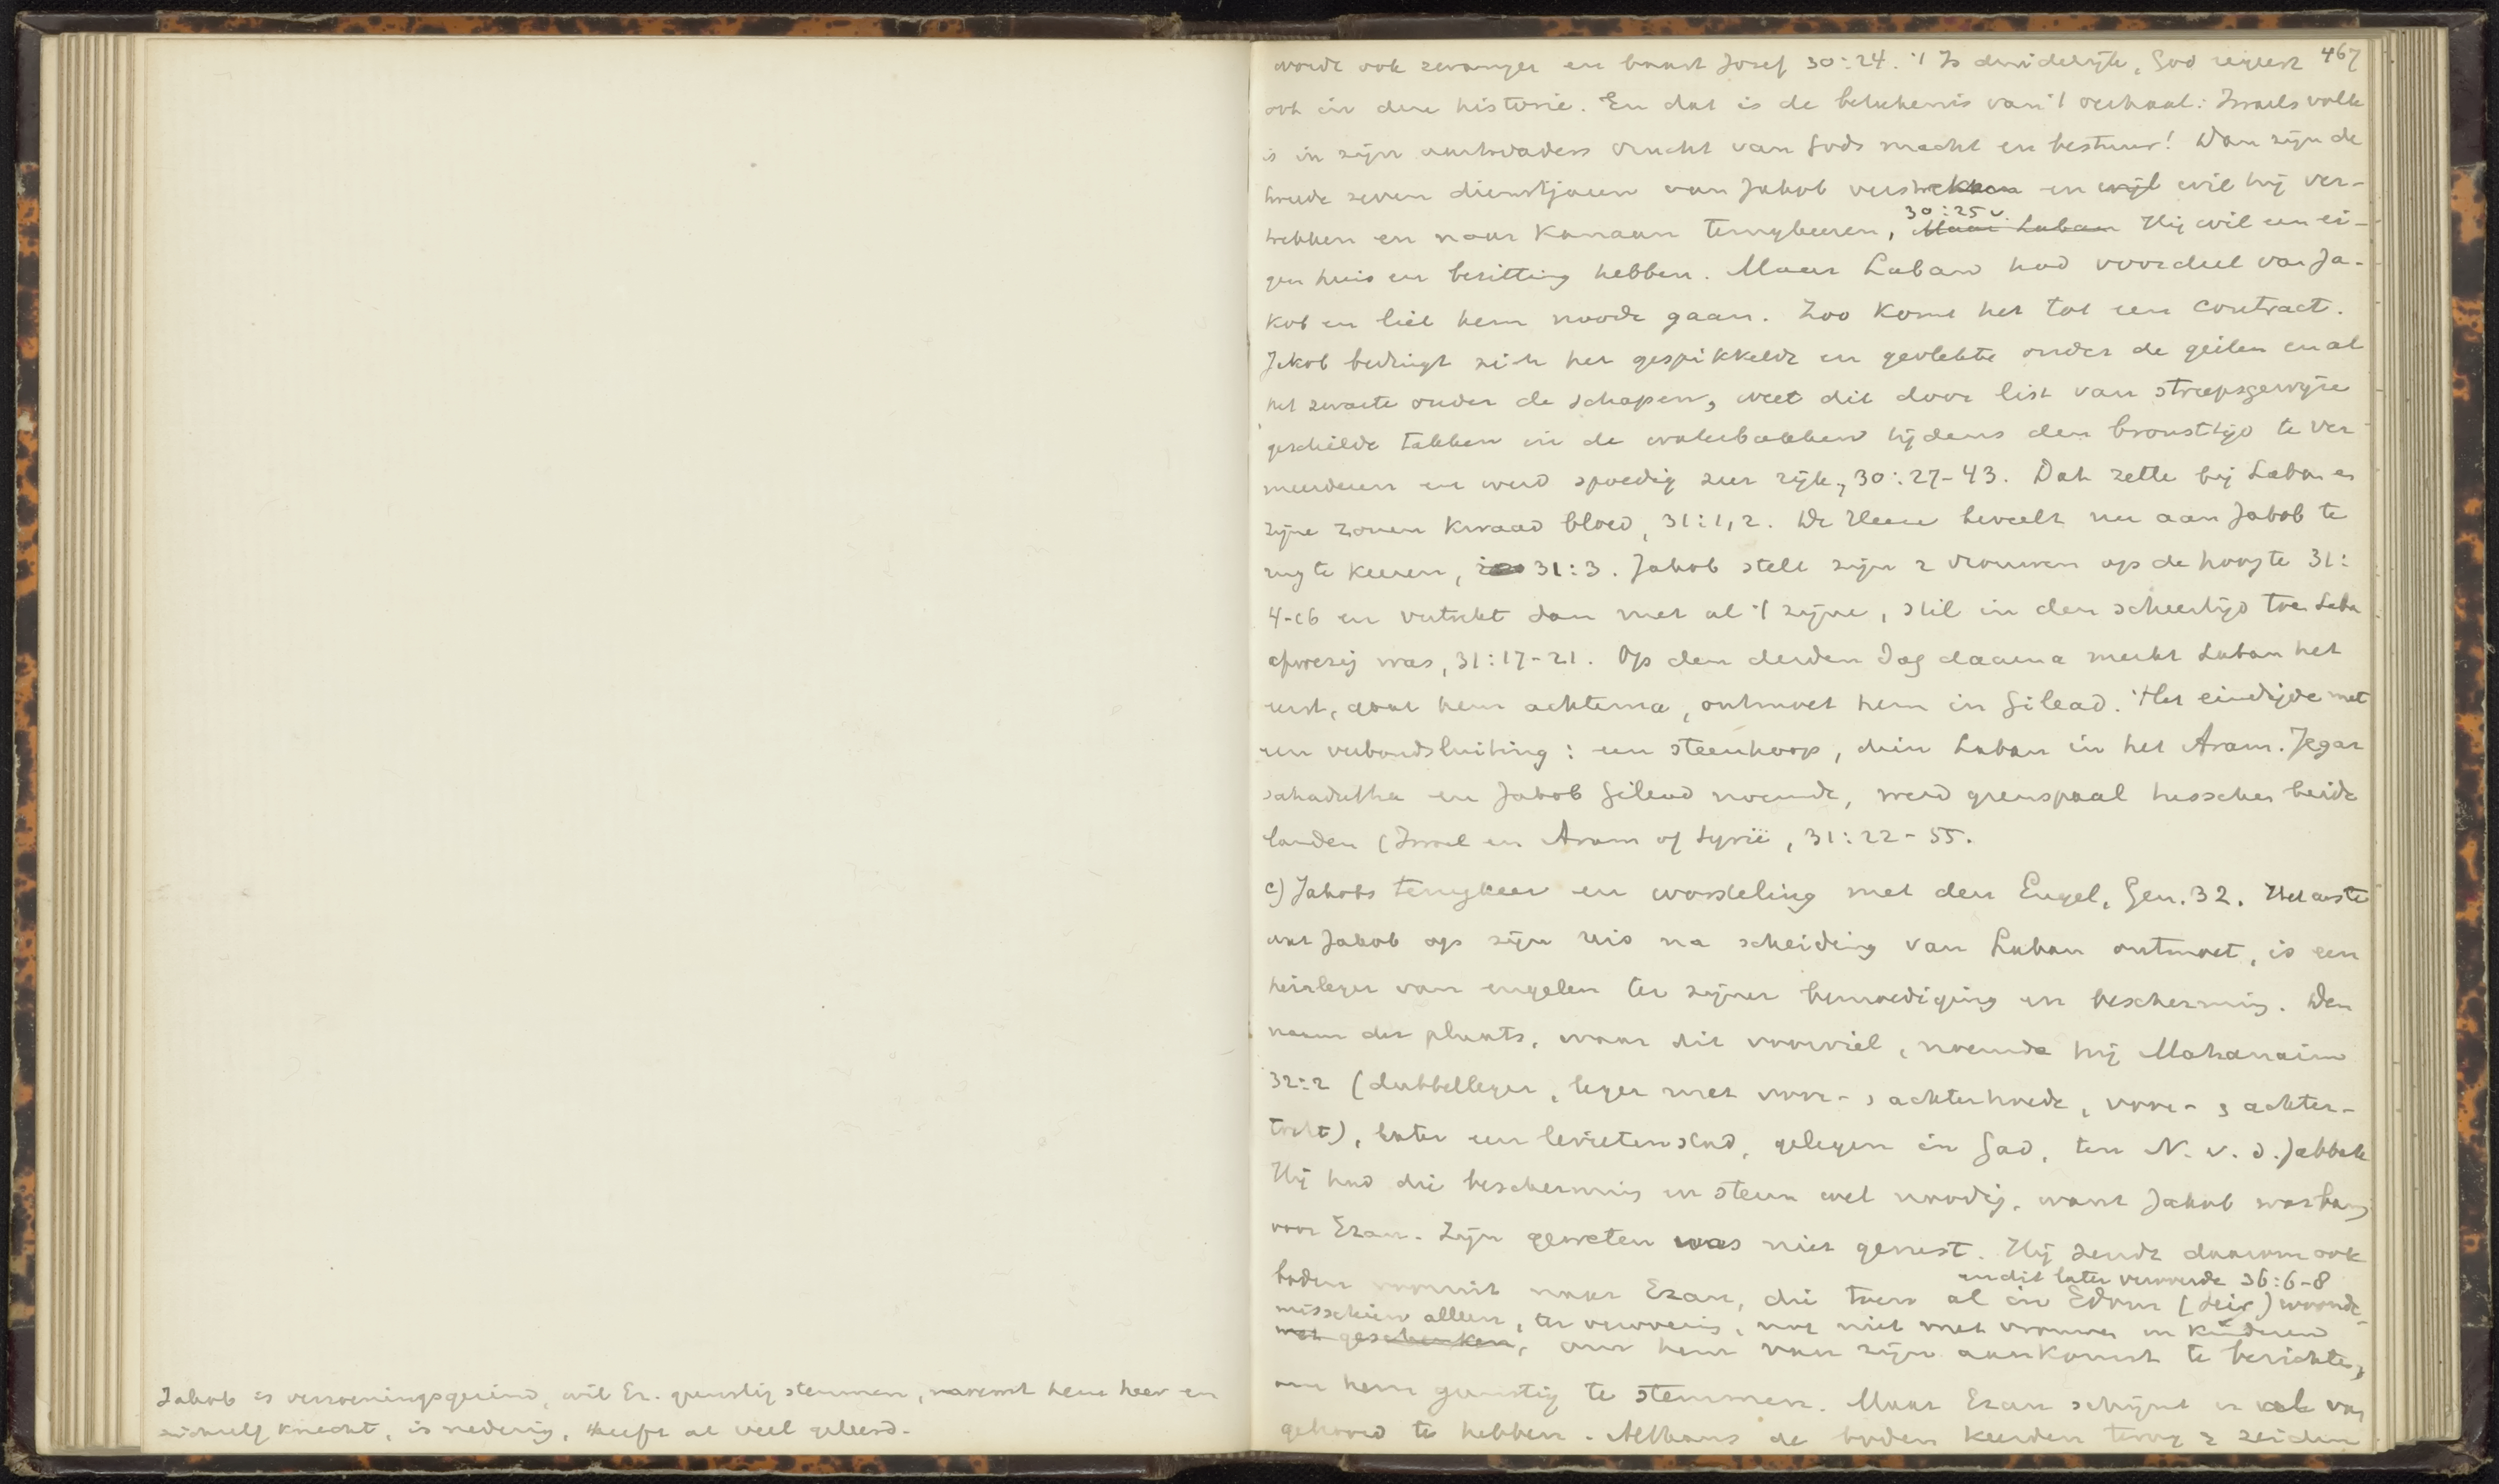 Jakob is verzoeningsgezind, wil Ez. gunstig stemmen, noemt hem heer en
zichzelf knecht, is nederig, heeft al veel geleerd.
467
wordt ook zwanger en baart Jozef 30:24. 't Is duidelijk, God regeert
ook in deze historie. En dat is de beteekenis van 't verhaal: Israels volk
is in zijn aartsvaders vrucht van Gods macht en bestuur! Dan zijn de
tweede zeven dienstjaren van Jakob verstreken en wil hij ver-
trekken en naar Kanaan terugkeeren, 30:25v. Maar Laban Hij wil een ei-
gen huis en bezitting hebben. Maar Laban had voordeel van Ja-
kob en liet hem noode gaan. Zoo komt het tot een contract.
Jakob bedingt zich het gespikkelde en gevlekte onder de geiten en al
het zwarte onder de schapen, weet dit door list van streepsgewijze
geschilde takken in de waterbakken tijdens den bronsttijd te ver-
meerderen en werd spoedig zeer rijk, 30:27-43. Dat zette bij Laban en
zijne zonen kwaad bloed, 31:1,2. De Heere beveelt nu aan Jakob te
rug te keeren, 31:3. Jakob stelt zijn 2 vrouwen op de hoogte 31:
4-16 en vertrekt dan met al 't zijne, stil in den scheertijd toen Laban
afwezig was, 31:17-21. Op den derden dag daarna merkt Laban het
eerst, gaat hem achterna, ontmoet hem in Gilead. Het eindigde met
een verbondsluiting: een steenhoop, dien Laban in het Aram. Jegar
sahadutha en Jakob Gilead noemde, werd grenspaal tusschen beide
landen (Israel en Aram of Syrië, 31:22-55.
c) Jakobs terugkeer en worsteling met den Engel, Gen. 32. Het eerste
wat Jakob op zijn reis na scheiding van Laban ontmoet, is een
heirleger van engelen ter zijner bemoediging en bescherming. Den
naam der plaats, waar dit voorviel, noemde hij Mahanaim
32:2 (dubbelleger, leger met voor- & achterhoede, voor- & achter-
tocht), later een levietenstad, gelegen in Gad, ten N. v. d. Jabbok
Hij had die bescherming en steun wel noodig, want Jakob was bang
voor Ezau. Zijn geweten was niet gerust. Hij zendt daarom ook
boden vooruit naar Ezau, die toen al in Edom (Seir) woonde
en dit later veroverde 36:6-8
misschien alleen, ter verovering, nog niet met vrouwen en kinderen
met geschenken, om hem van zijn aankomst te berichten,
om hem gunstig te stemmen. Maar Ezau schijnt er al van
gehoord te hebben. Althans de boden keerden terug & zeiden